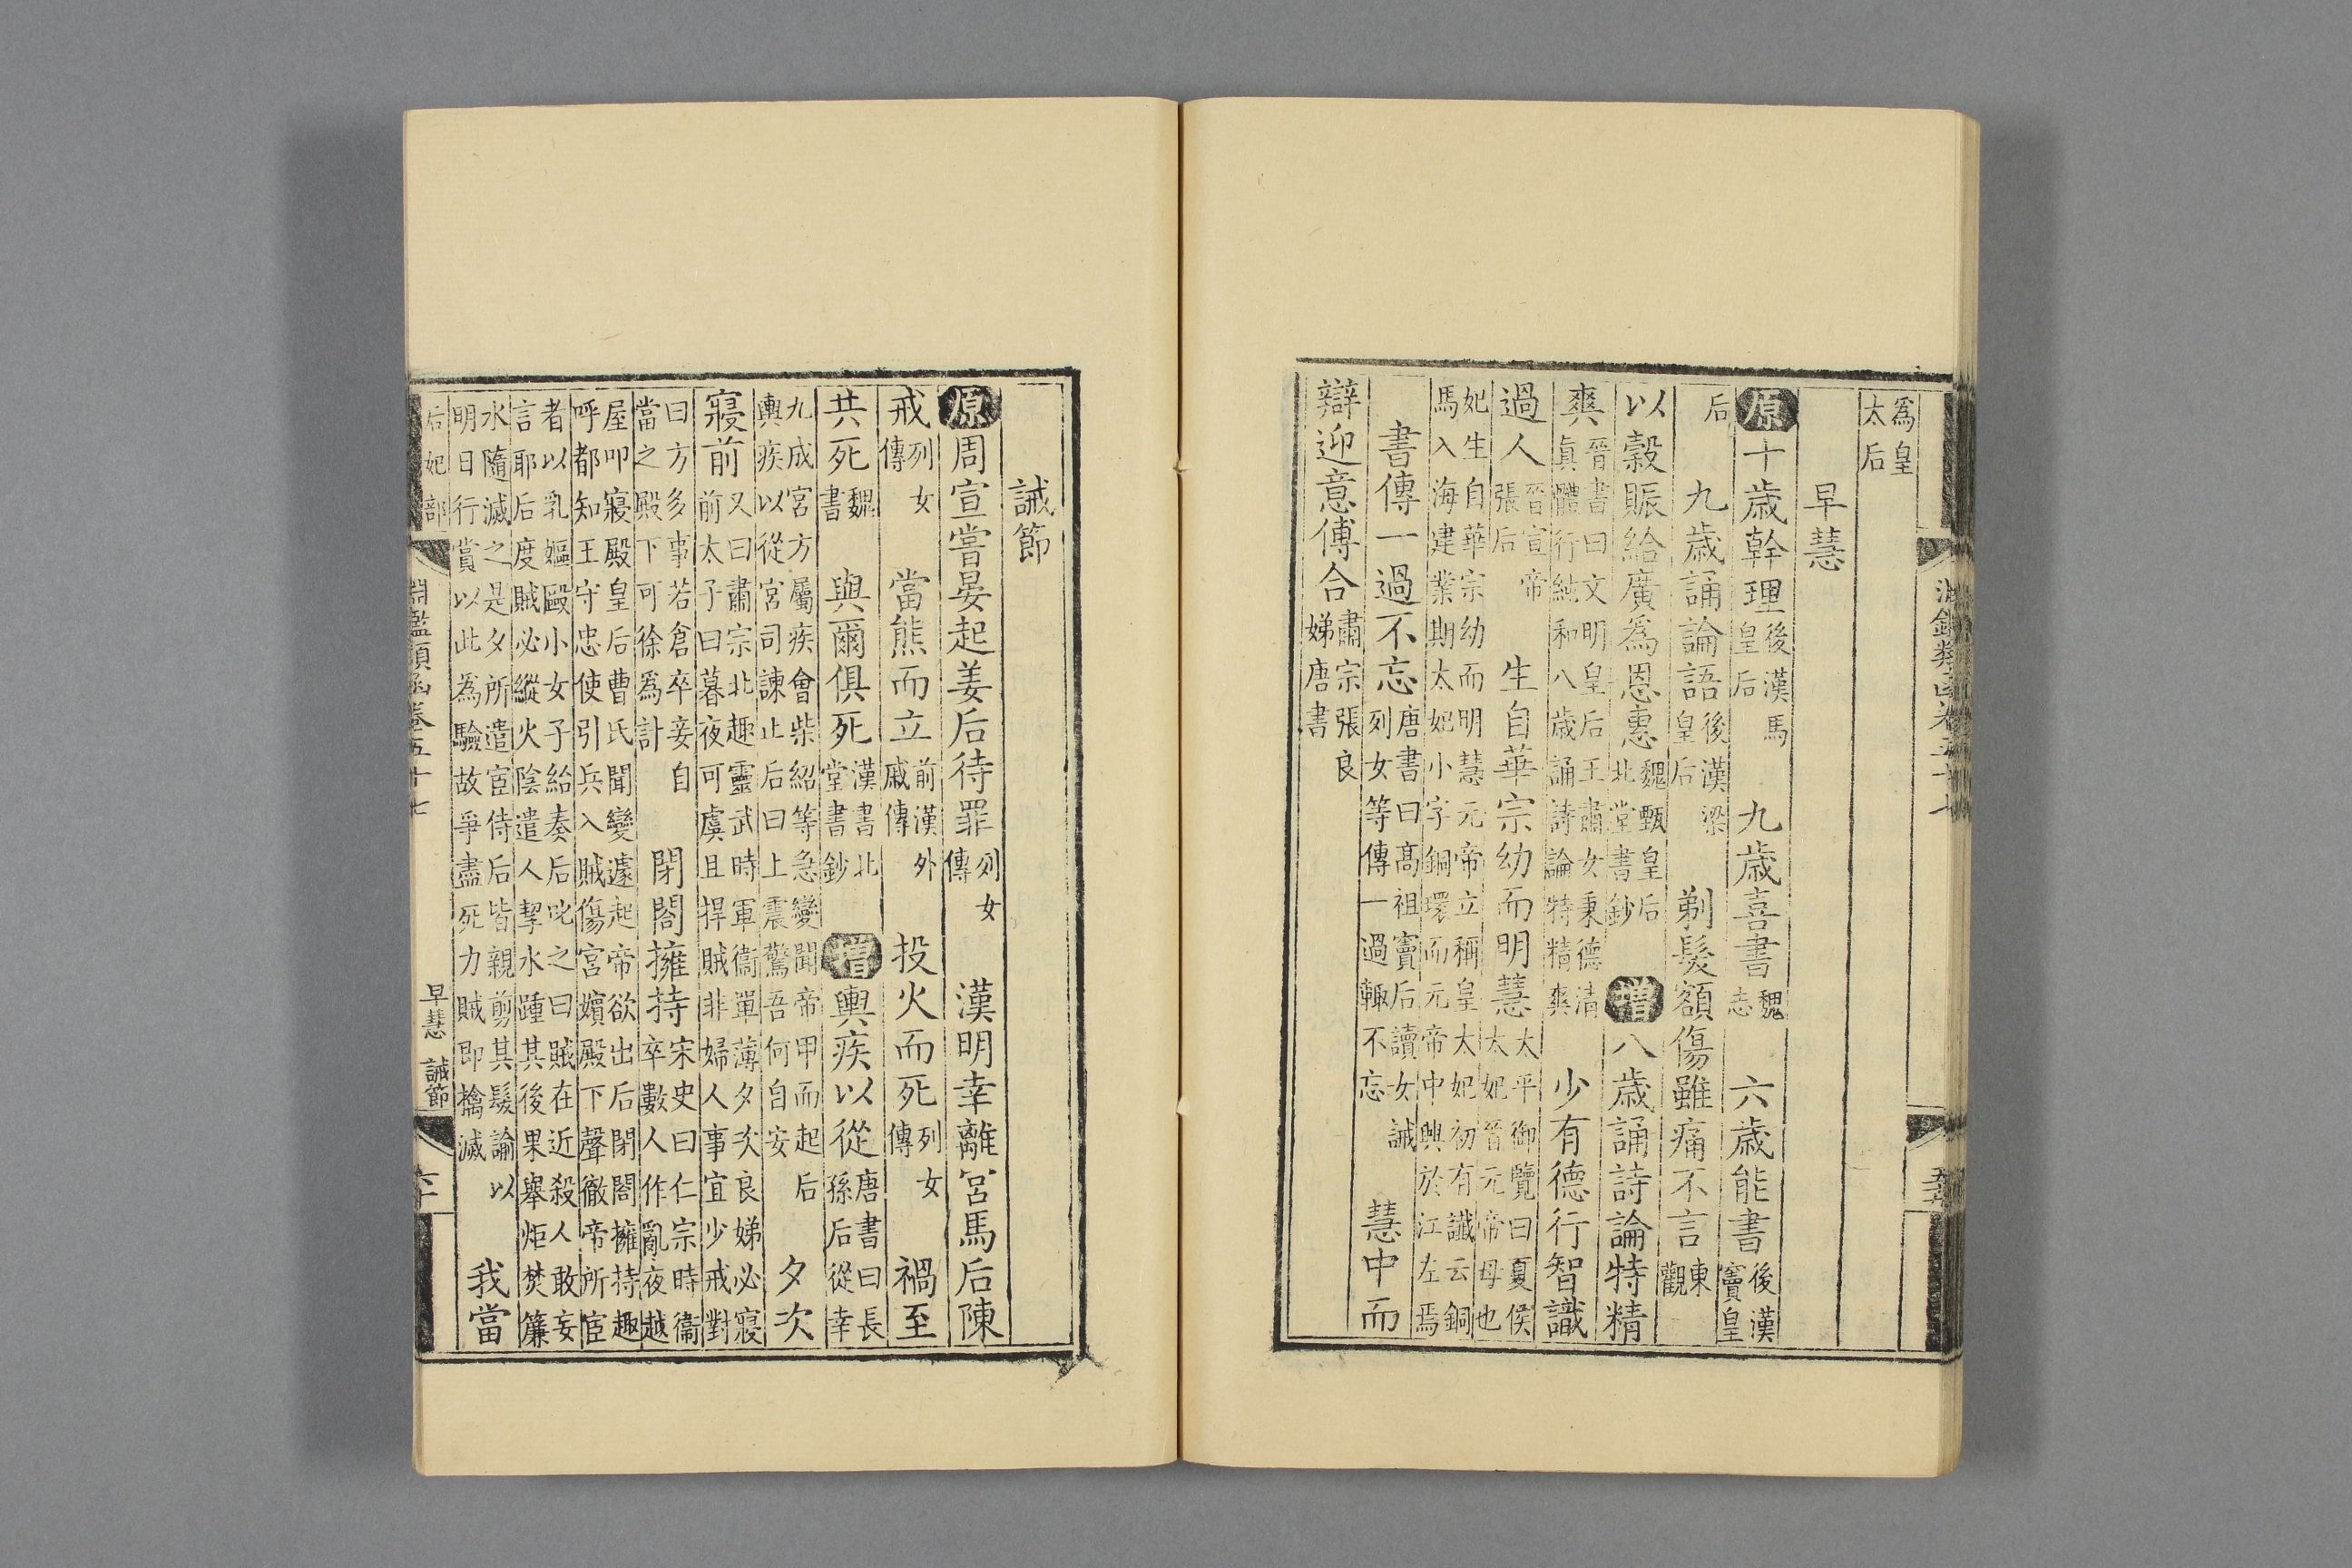 爲皇
太后
早慧
原十歳幹理後漢馬皇后 九歳喜書魏志 六歳能書後漢竇皇
后 九歳誦論語後漢梁皇后 剃髮額傷雖痛不言東觀
以穀賑給廣爲恩惠魏甄皇后北堂書鈔 增八歳誦詩論特精
爽晉書曰文明皇后王肅女秉德清眞體行純和八歳誦詩論特精爽 少有德行智識
過人晉宣帝張后 生自華宗幼而明慧太平御覽曰夏侯太妃晉元帝母也
妃生自華宗幼而明慧元帝立稱皇太妃初有讖云銅馬入海建業期太妃小字銅環而元帝中興於江左焉
書傳一過不忘唐書曰高祖竇后讀女誡列女等傳一過輙不忘 慧中而
辯迎意傅合肅宗張良娣唐書
誡節
原周宣嘗晏起姜后待罪列女傳 漢明幸離宮馬后陳
戒列女傳 當熊而立前漢外戚傳 投火而死列女傳 禍至
共死魏書 與爾俱死漢書北堂書鈔 增輿疾以從唐書曰長孫后從幸
九成宮方屬疾會柴紹等急變聞帝甲而起后輿疾以從宮司諫止后曰上震驚吾何自安 夕次
寢前又曰肅宗北趣靈武時軍衞單薄夕次良娣必寢前太子曰暮夜可虞且捍賊非婦人事宜少戒對
曰方多事若倉卒妾自當之殿下可徐爲計 閉閤擁持宋史曰仁宗時衞卒數人作亂夜越
屋叩寢殿皇后曹氏聞變遽起帝欲出后閉閤擁持趣呼都知王守忠使引兵入賊傷宮嬪殿下聲徹帝所宦
者以乳嫗毆小女子紿奏后叱之曰賊在近殺人敢妄言耶后度賊必縱火陰遣人挈水踵其後果舉炬焚簾
水隨滅之是夕所遣宦侍后皆親剪其髮諭以明日行賞以此爲驗故爭盡死力賊即擒滅 我當
后妃部
淵鑑類函卷五十七
早慧 誡節